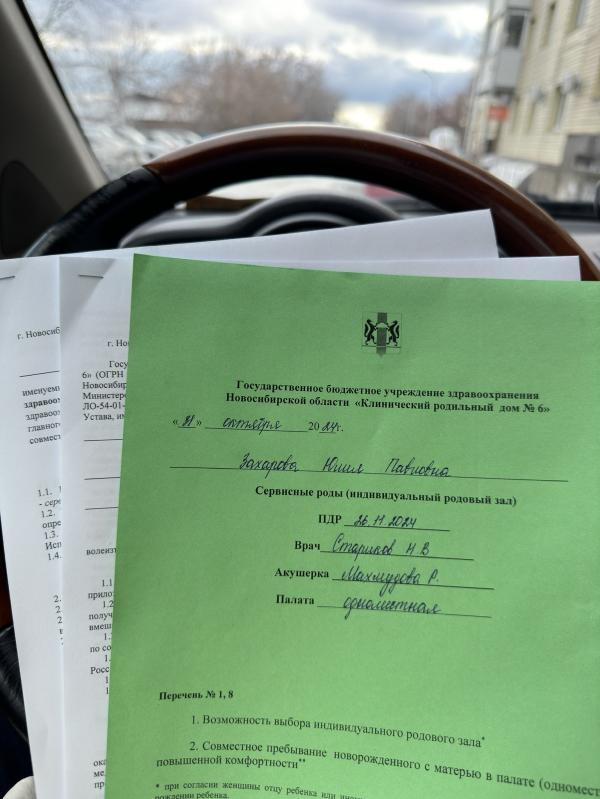 Государственное бюджетное учреждение здравоохранения
Новосибирской области «Клинический родильный дом № 6»
«21» октября 2024г.
Захарова Юлия Павловна
Сервисные роды (индивидуальный родовый зал)
ПДР 26.11.2024
Врач Стариков Н В
Акушерка Махмудова Р.
Палата одноместная
Перечень № 1, 8
1. Возможность выбора индивидуального родового зала*
2. Совместное пребывание новорожденного с матерью в палате (одномест
повышенной комфортности**
* при согласии женщины отцу ребенка или
рождении ребенка.
г. Новосиб
именуем
здравоо
здравоо
главног
совмест
1.1.
- сер
1.2.
опре
1.3.
Исп
1.4.
2.
2
2
г. Но
Госу
6» (ОГРН
Новосибир
Министер
ЛО-54-01-
Устава, им
волеизъ
1.1
прило
1.2
получ
вмеш
1.
по со
1.
Росс
1